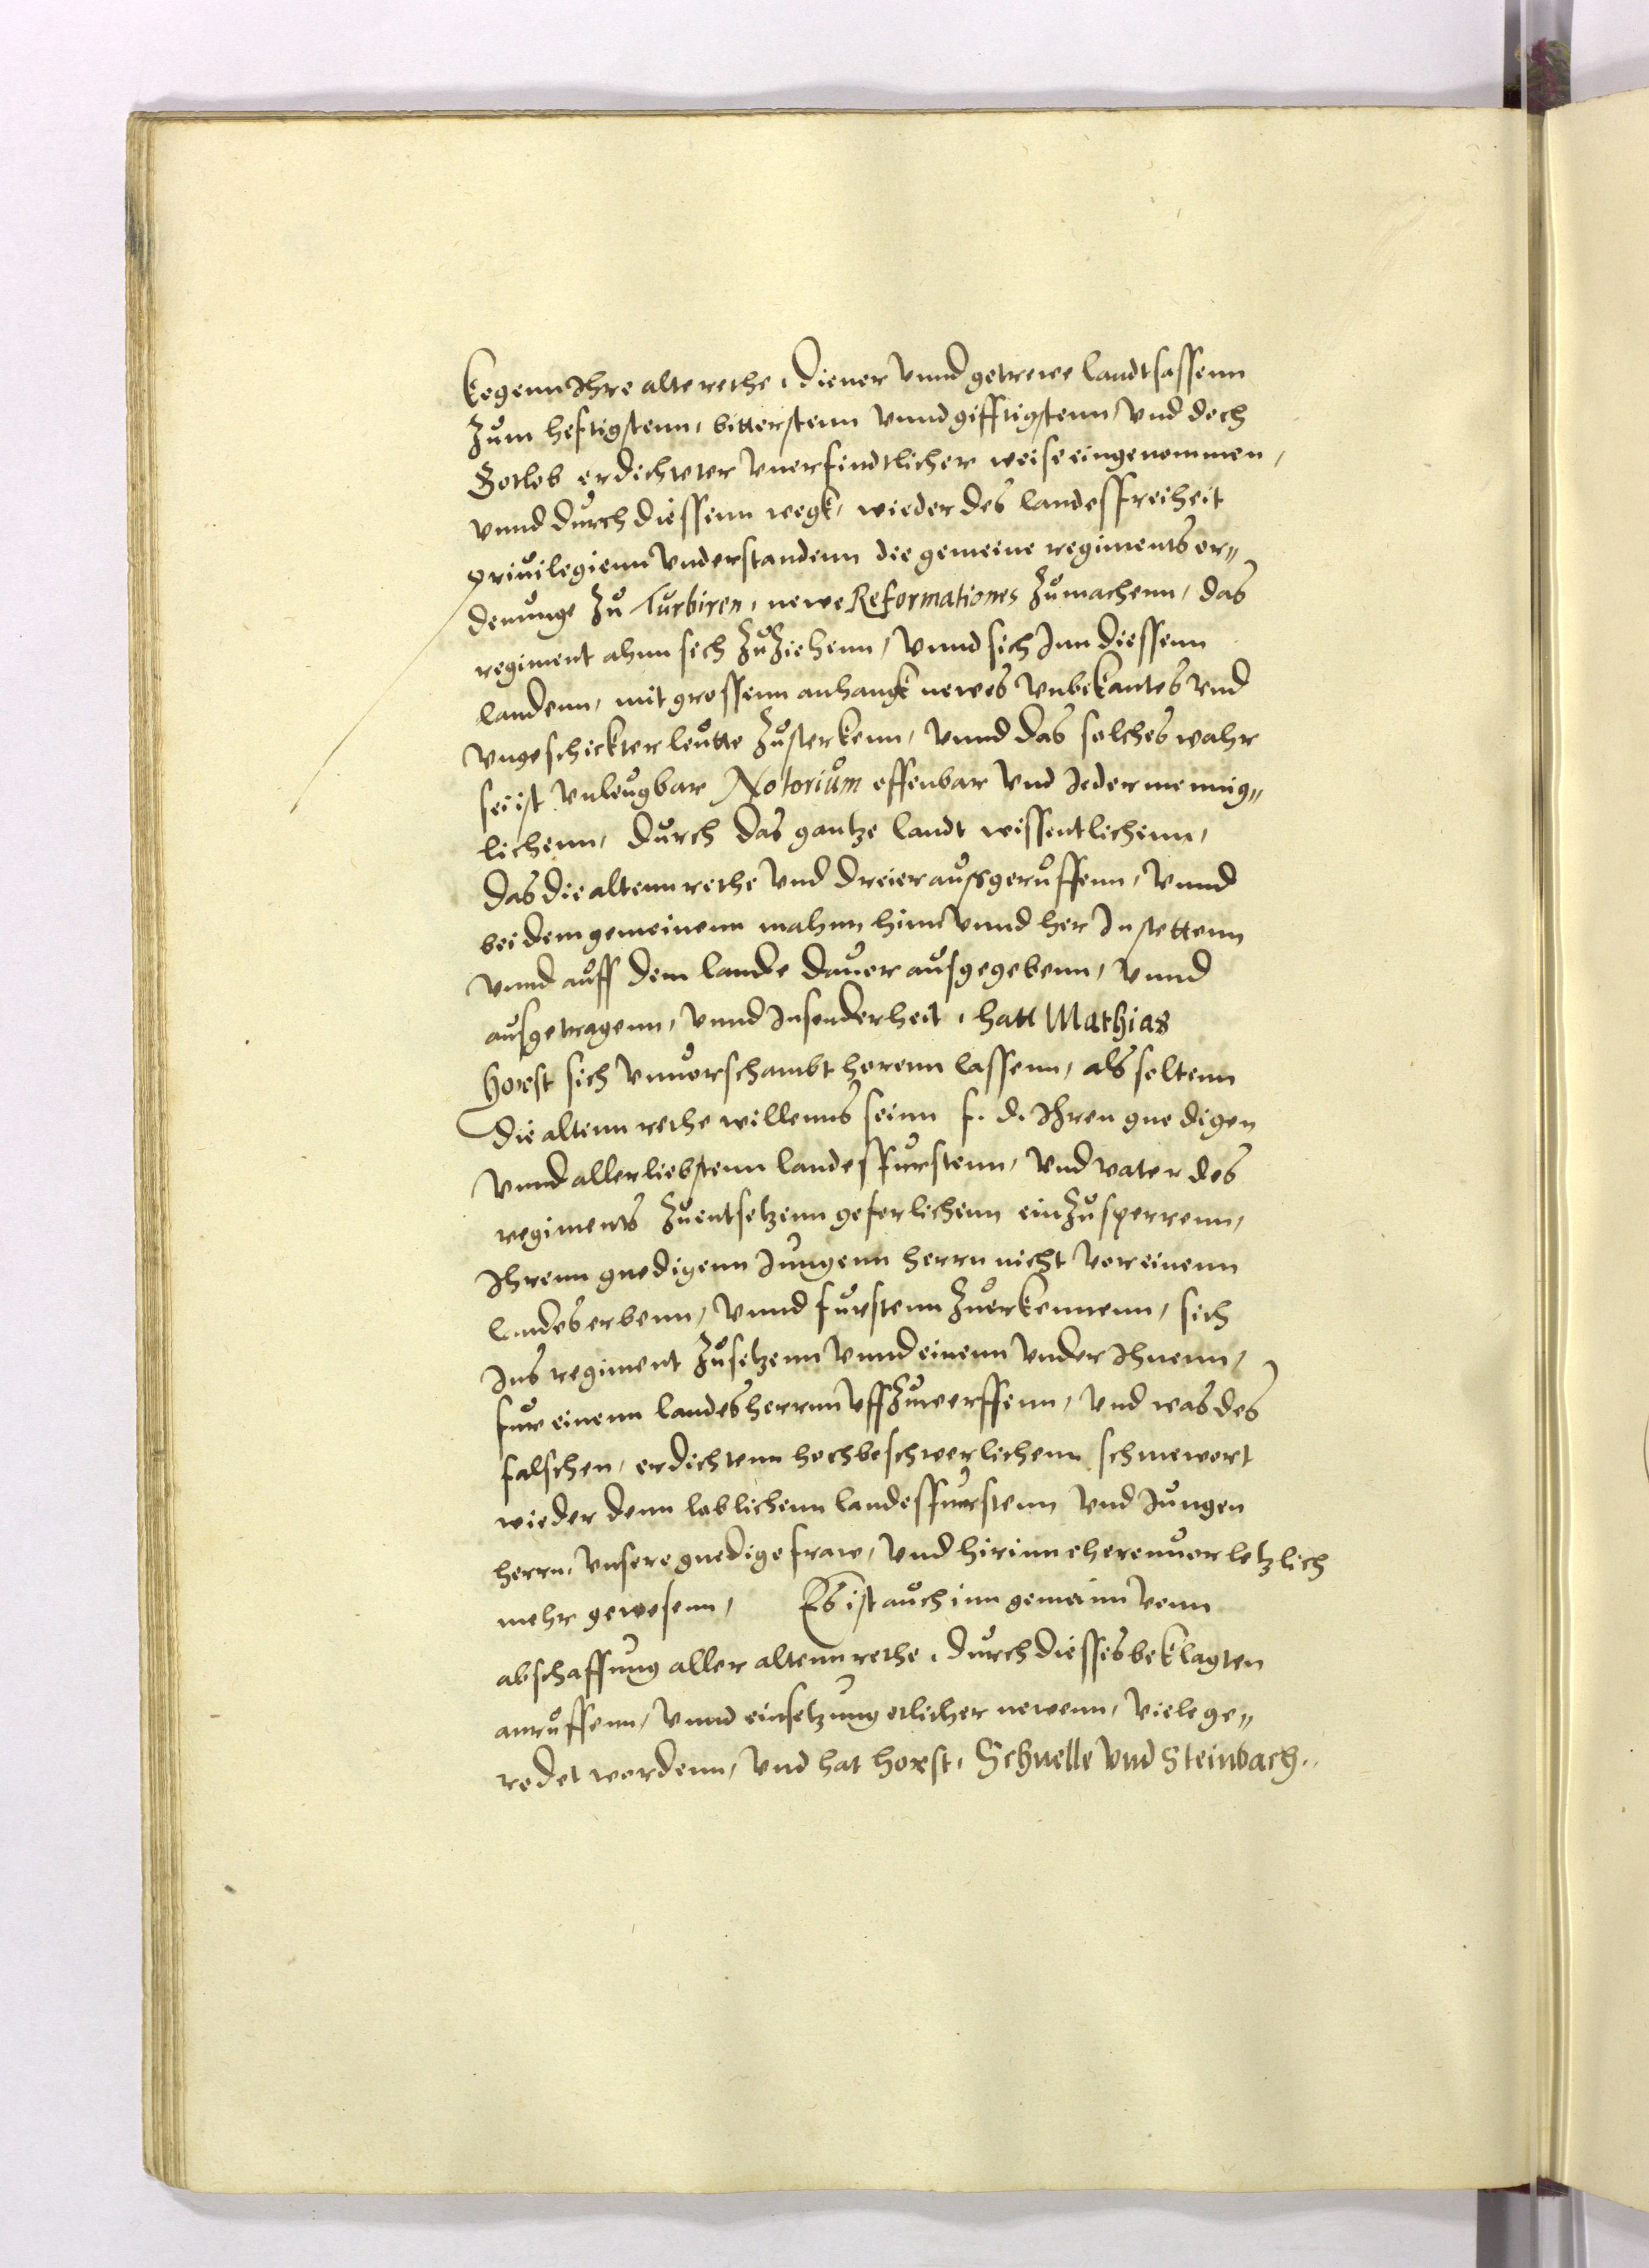 kegenn Ihre alte rethe, diener vnnd getrewe landtsassenn
Zum heftigstenn, bitterstenn vnnd gifftigstenn, vnd doch
Gotlob erdichteter vnerfindtlicher weise eingenommen,
vnnd durch diessenn wegk, wieder des landes freiheit
priuilegienn vnderstandenn die gemeine regiments or„
denunge Zu Turbiren, newe Reformationes Zumachenn, das
regiment ahnn sich Zuziehenn, vnnd sich Inn diessenn
landenn, mit grossenn anhangk newes vnbekantes vnd
vngeschickter leutte Zusterkenn, vnnd das solches wahr
sei ist vnleugbar Notorium offenbar vnd Jedermennig„
lichenn, durch das gantze landt wissentlichenn,
das die altenn rethe vnd dreier aussgeruffenn, vnnd
bei dem gemeinenn mahnn hinn vnnd her In stettenn
vnnd auff dem lande dauor ausgegebenn, vnnd
ausgetragenn, vnnd Insonderheit, hatt Mathias
Horst sich vnuorschambt horenn lassenn, als soltenn
die altenn rethe willenns seinn f. d. Ihren gnedigen
vnnd allerliebstenn landesfurstenn, vnd vater des
regiments Zuentsetzenn geferlichenn einzusperrenn,
Ihrenn gnedigenn Jungenn herrn nicht vor einenn
landeserbenn, vnnd furstenn Zuerkennenn, sich
Ins regiment Zusetzenn vnnd einenn vnder Ihnenn,
fur einenn landesherrnn vffzuwerffenn, vnd was des
falschen, erdichtenn hochbeschwerlichenn schmewort
wieder denn loblichenn landesfurstenn vnd Jungen
herrn, vnsere gnedige fraw, vnd hirinn eherenuorletzlich
mehr gewesenn, Es ist auch inn gemeinn vonn
abschaffung aller altenn rethe, durch diesses beklagten
anruffenn, vnnd einsetzung etlicher newenn, viele ge„
redet wordenn, vnd hat Horst, Schnelle vnd Steinbach..